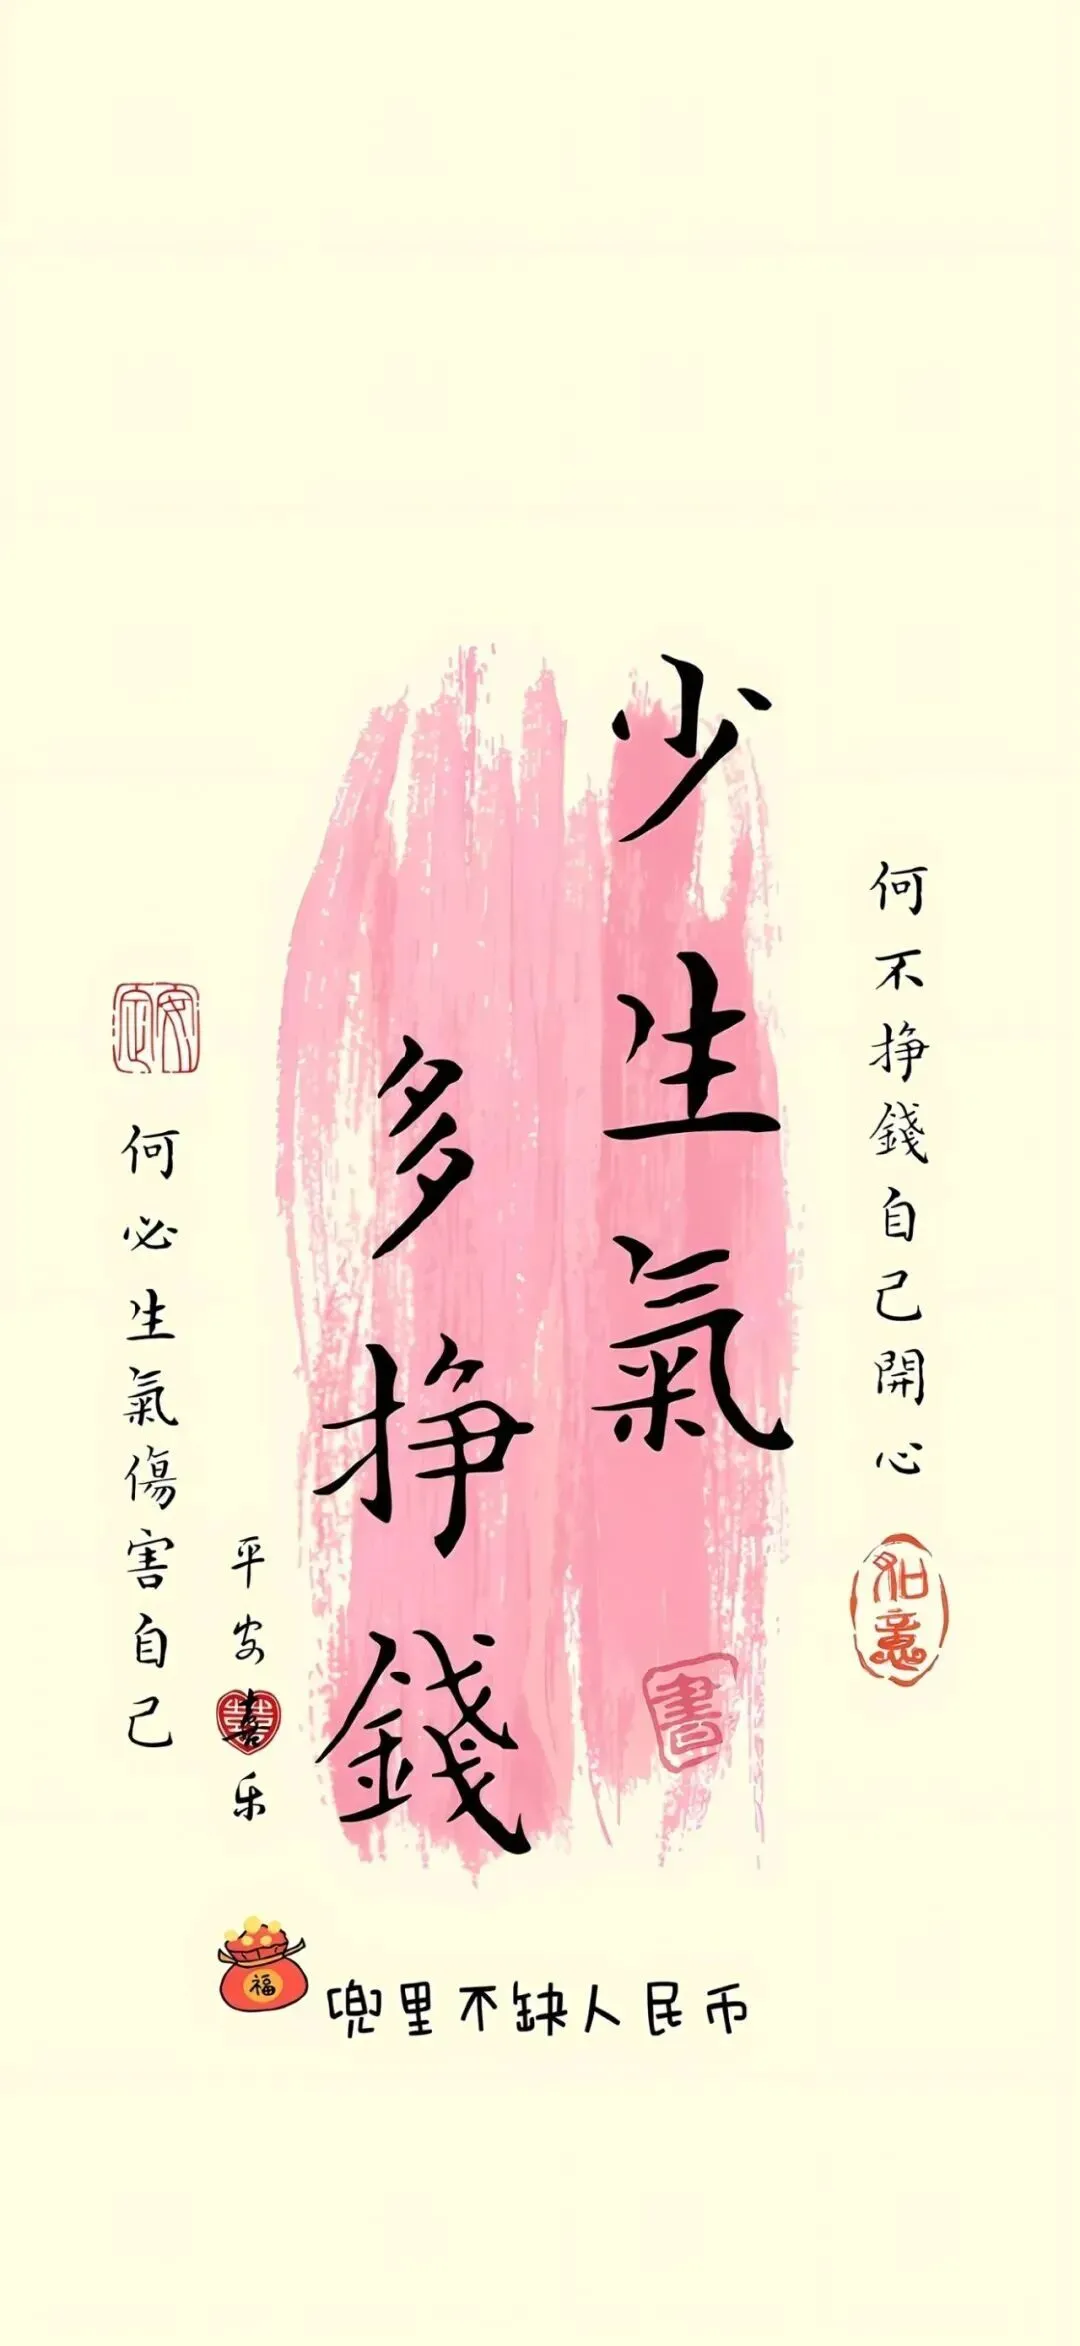 何不挣錢自己開心
如意
少生氣
書
多挣錢
平安喜乐
安定
何必生氣傷害自己
福
兜里不缺人民币